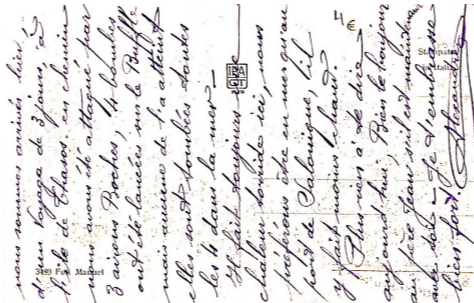 nous sommes arrivés hier
d'un voyage de 3 jours, à
l'île de Thasos, en chemin
nous avons été attaqué par
3 avions Boches, 4 bombes
ont été lancées sur le
mais aucune de l'a atteint
elles sont tombées toutes
les 4 dans la mer —
Il fait toujours une
chaleur torride ici, nous
préférons être en mer qu'au
port de Salonique, il
y fait moins chaud
Plus rien à te dire
aujourd'hui, Bien le bonjour
au père Jean s'il est
je t'embrasse
bien fort
Alexandre
4€
Stamp
Italia
3489 Fot. Manuel